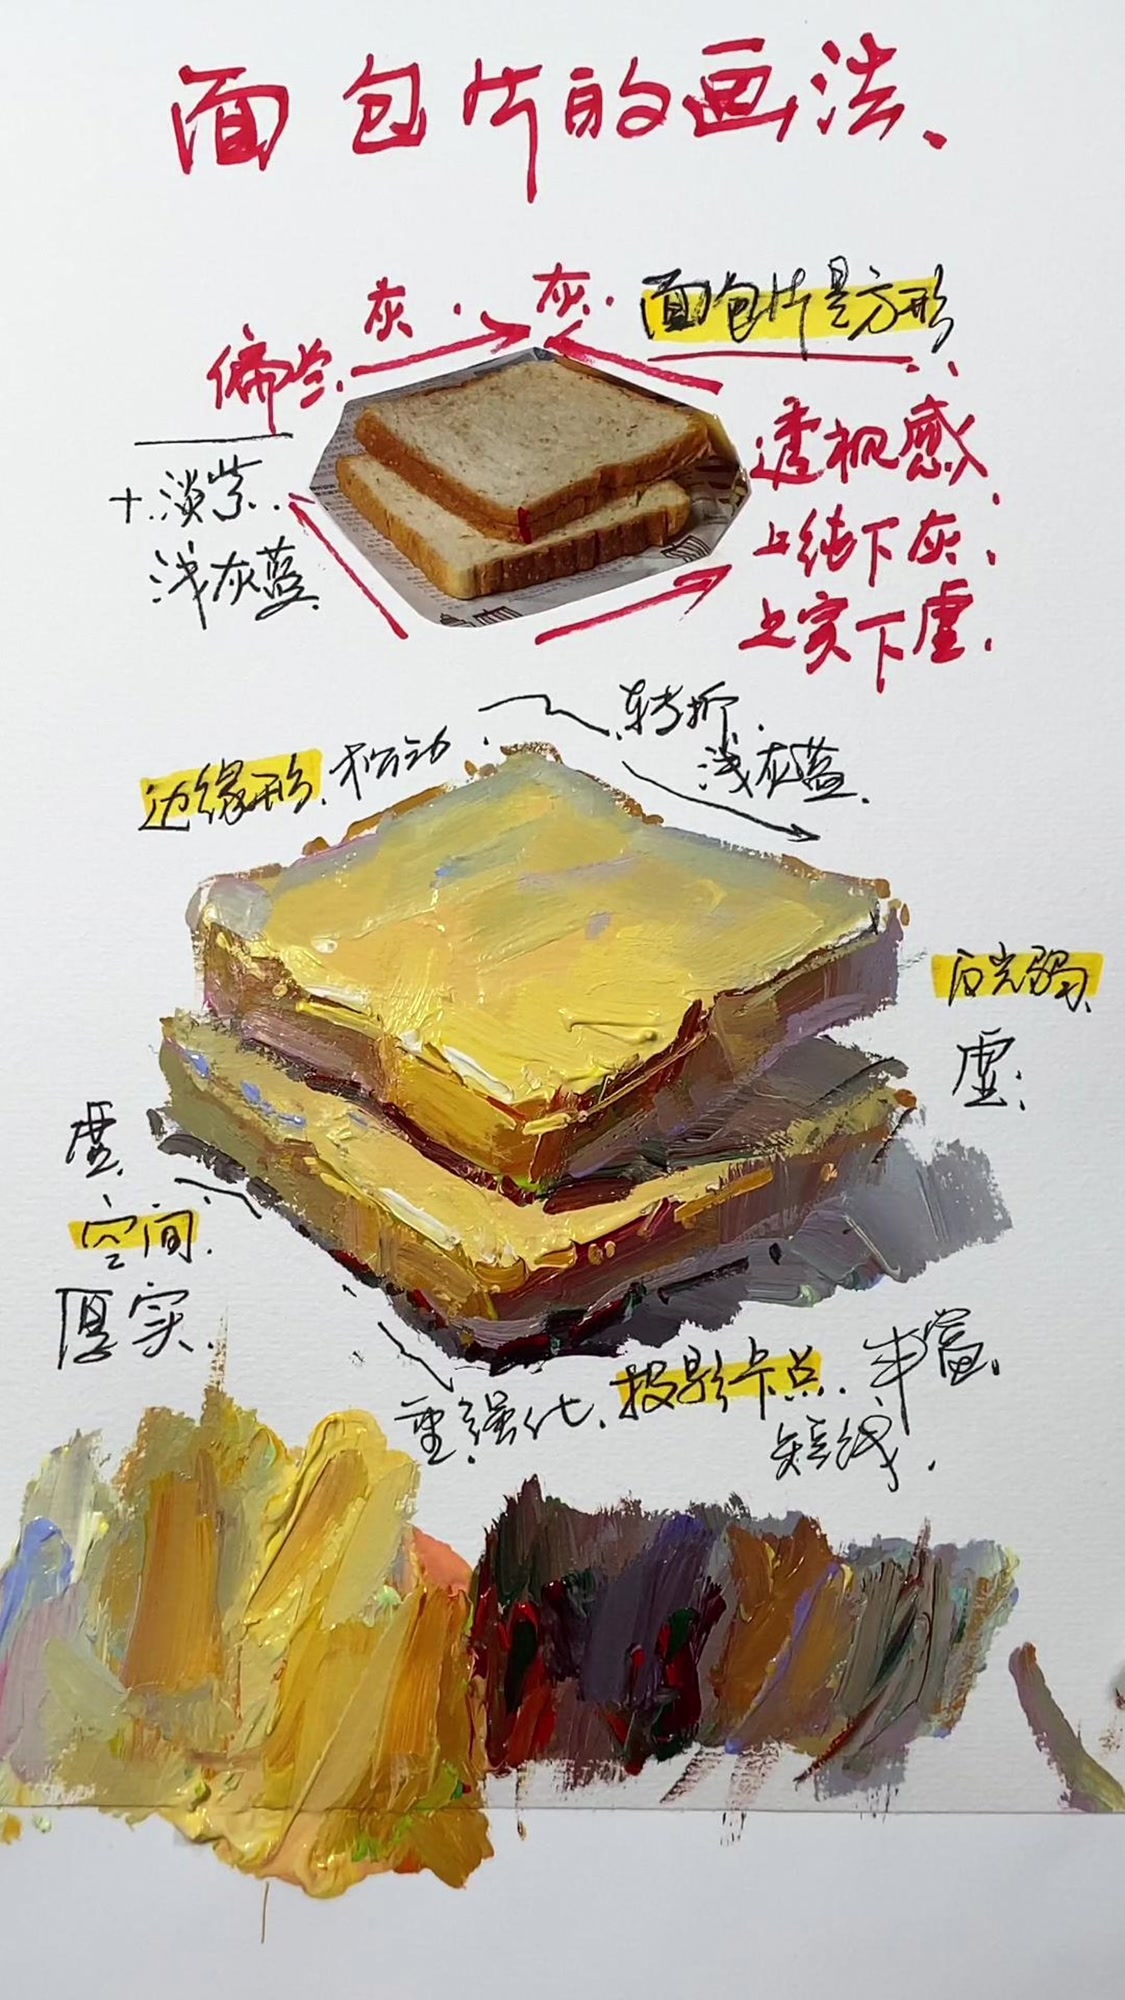 面包片的画法.
灰. 灰.
面包片是方形
偏兰.
透视感
+淡紫.
上纯下灰.
浅灰蓝
上实下虚.
转折.
浅灰蓝.
边缘形. 松动.
反光弱
虚.
虚.
空间.
厚实.
重强化.
投影卡点. 丰富.
短线.